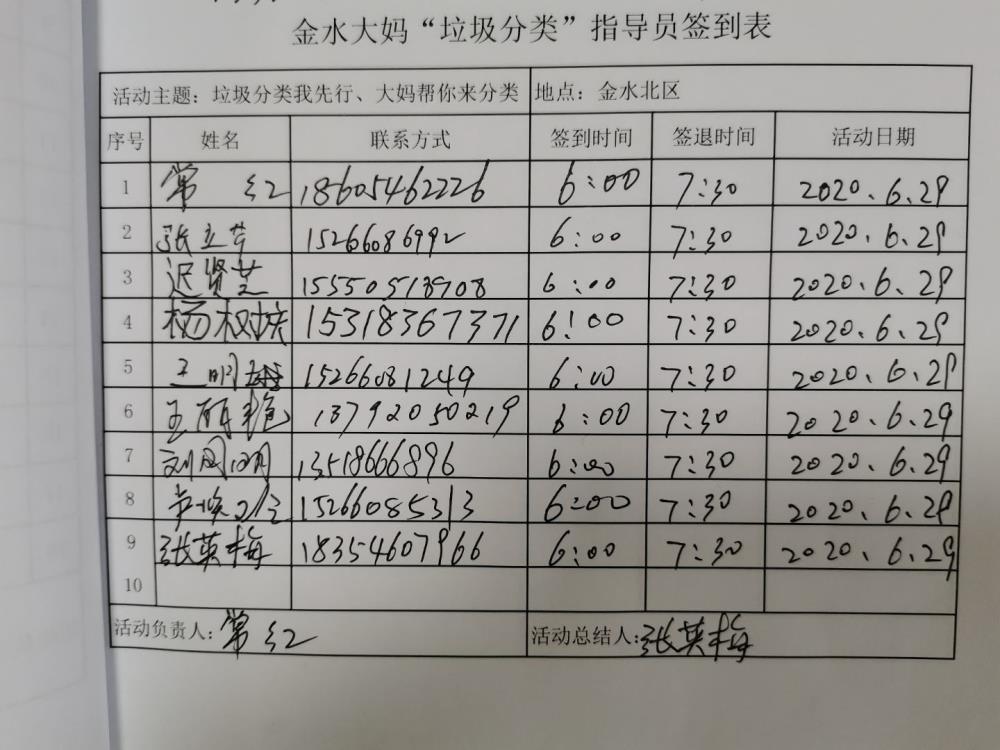 金水大妈“垃圾分类”指导员签到表
活动主题：垃圾分类我先行、大妈帮你来分类 地点：金水北区
序号 姓名 联系方式 签到时间 签退时间 活动日期
1 常红 18605462226 6:00 7:30 2020、6、29
2 张立芹 15266086992 6:00 7:30 2020、6、29
3 迟贤芝 15550513908 6:00 7:30 2020、6、29
4 杨树栋 15318367371 6:00 7:30 2020、6、29
5 王明 15266081249 6:00 7:30 2020、6、29
6 王丽艳 13792050219 6:00 7:30 2020、6、29
7 刘凤明 13518666896 6:00 7:30 2020、6、29
8 15266085313 6:00 7:30 2020、6、29
9 张英梅 18354607966 6:00 7:30 2020、6、29
10
活动负责人：常红 活动总结人：张英梅